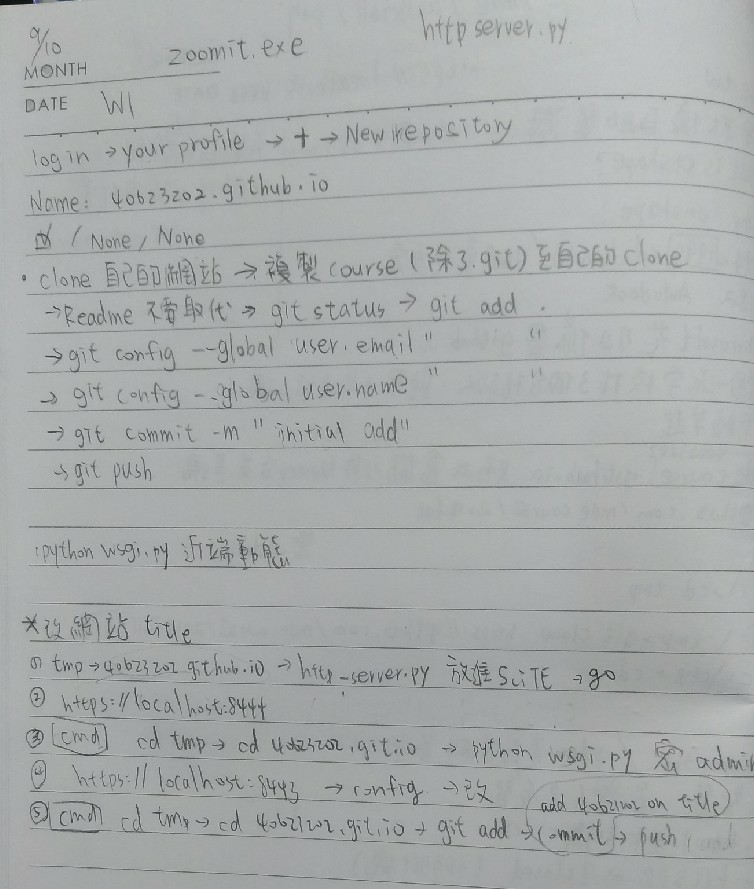 9/10
MONTH
zoomit.exe
http server.py
DATE W1
login → your profile → + → New repository
Name: 40623202.github.io
☑ / None / None
• clone 自己的網站 → 複製 course (除了.git) 至自己的 clone
→ Readme 不要取代 → git status → git add .
→ git config --global user.email " "
→ git config --global user.name " "
→ git commit -m " initial add"
→ git push
python wsgi.py 近端動態
*改網站 title
① tmp → 40623202.github.io → http-server.py 放進 SciTE → go
② https://localhost:8444
③ [cmd] cd tmp → cd 40623202.git.io → python wsgi.py admin
④ https://localhost:8443 → config → 改
add 40621202 on title
⑤ [cmd] cd tmp → cd 40621202.git.io → git add → commit → push